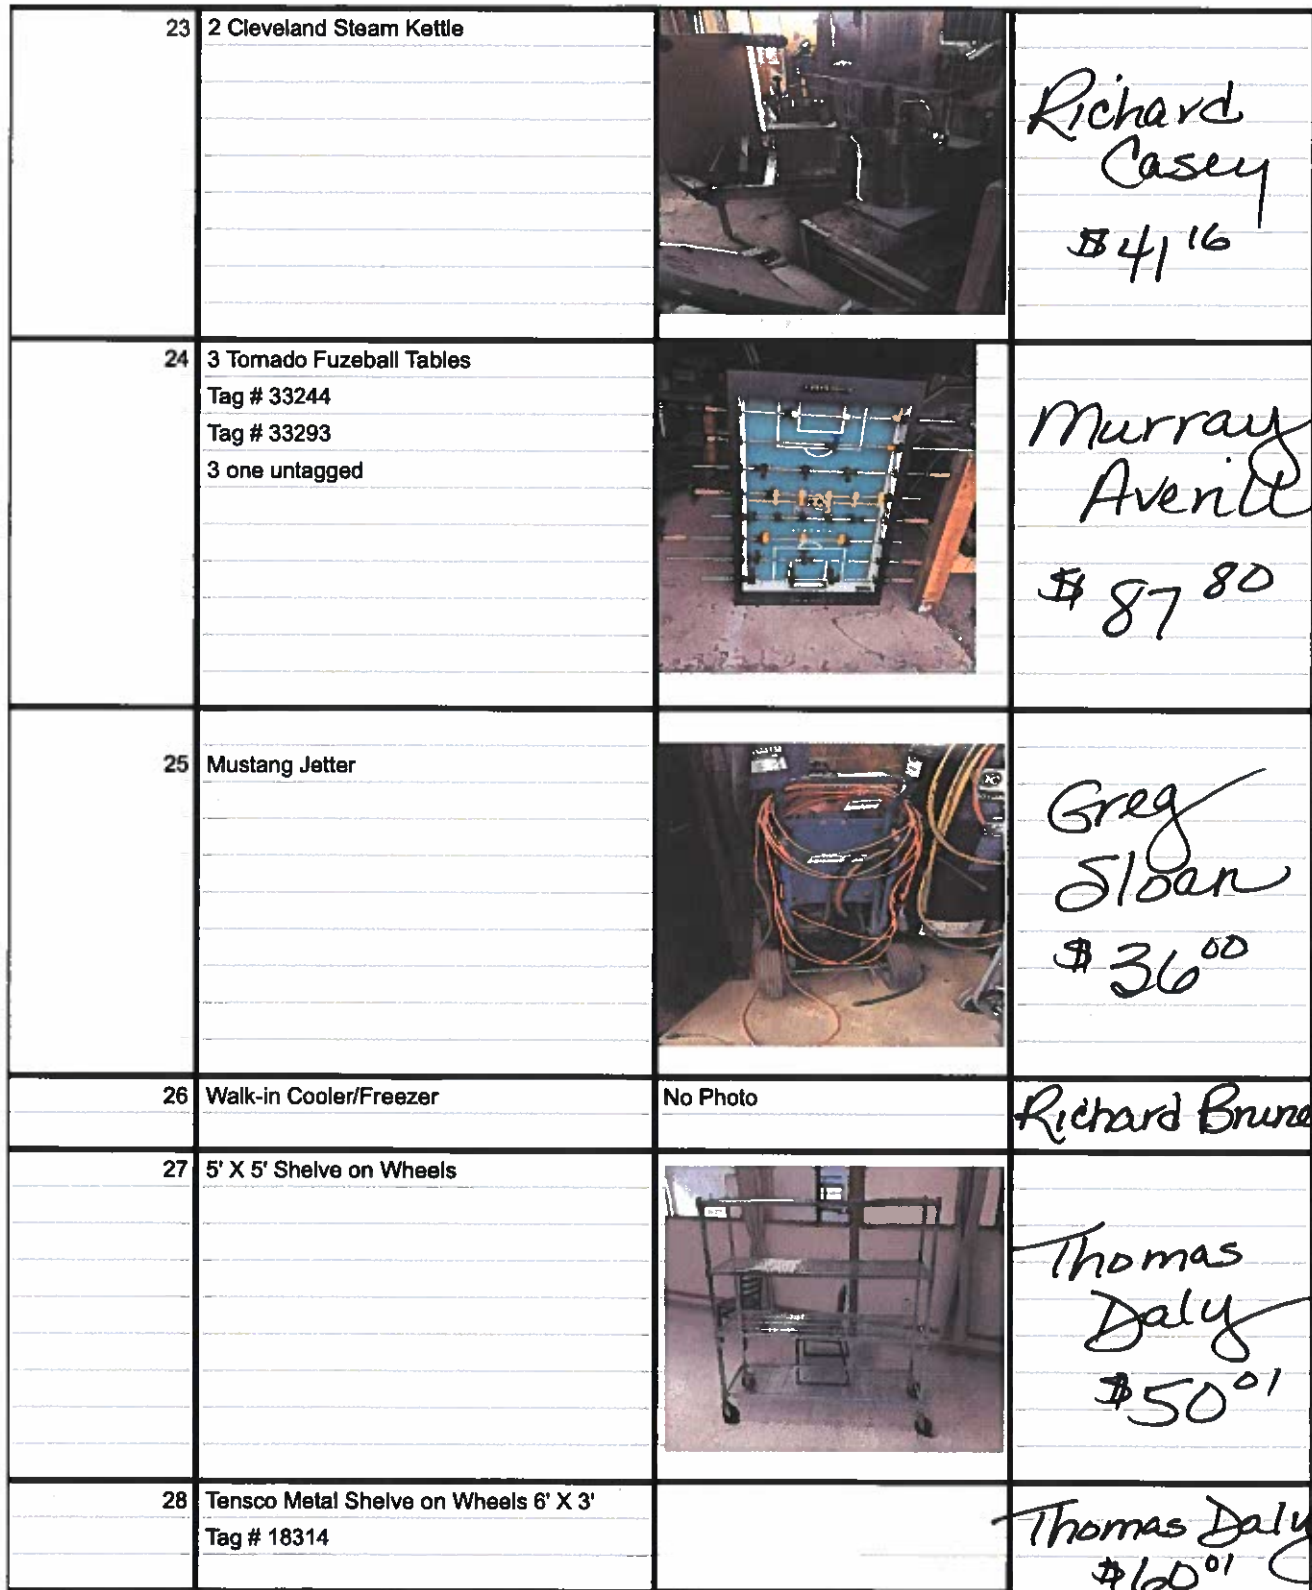 23 2 Cleveland Steam Kettle
Richard
Casey
$41 16
24 3 Tornado Fuzeball Tables
Tag # 33244
Tag # 33293
3 one untagged
Murray
Averill
$ 87 80
25 Mustang Jetter
Greg
Sloan
$ 36 00
26 Walk-in Cooler/Freezer No Photo Richard Brune
27 5' X 5' Shelve on Wheels
Thomas
Daly
$50 01
28 Tensco Metal Shelve on Wheels 6' X 3' Thomas Daly
Tag # 18314
$60 01